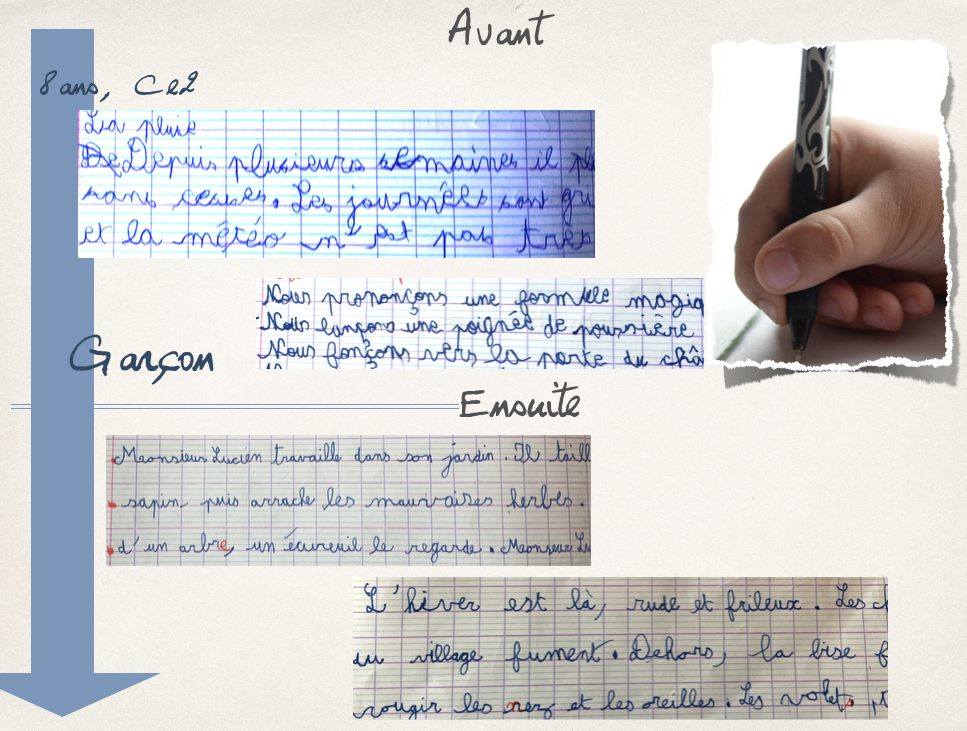 Avant
8 ans, Ce2
La pluie
Depuis plusieurs semaines il pl
sans cesses. Les journées sont gri
et la météo n'est pas très
Nous prononçons une formule magiq
Nous lançons une poignée de poussière
Nous fonçons vers la porte du châ
Garçon
Ensuite
Meonsieur Lucien travaille dans son jardin. Il taill
sapin puis arrache les mauvaises herbes.
d'un arbre, un écureuil le regarde. Meonsieur Lu
L'hiver est là, rude et frileux. Les ch
au village fument. Dehors, la bise f
rougir les nez et les oreilles. Les volets,